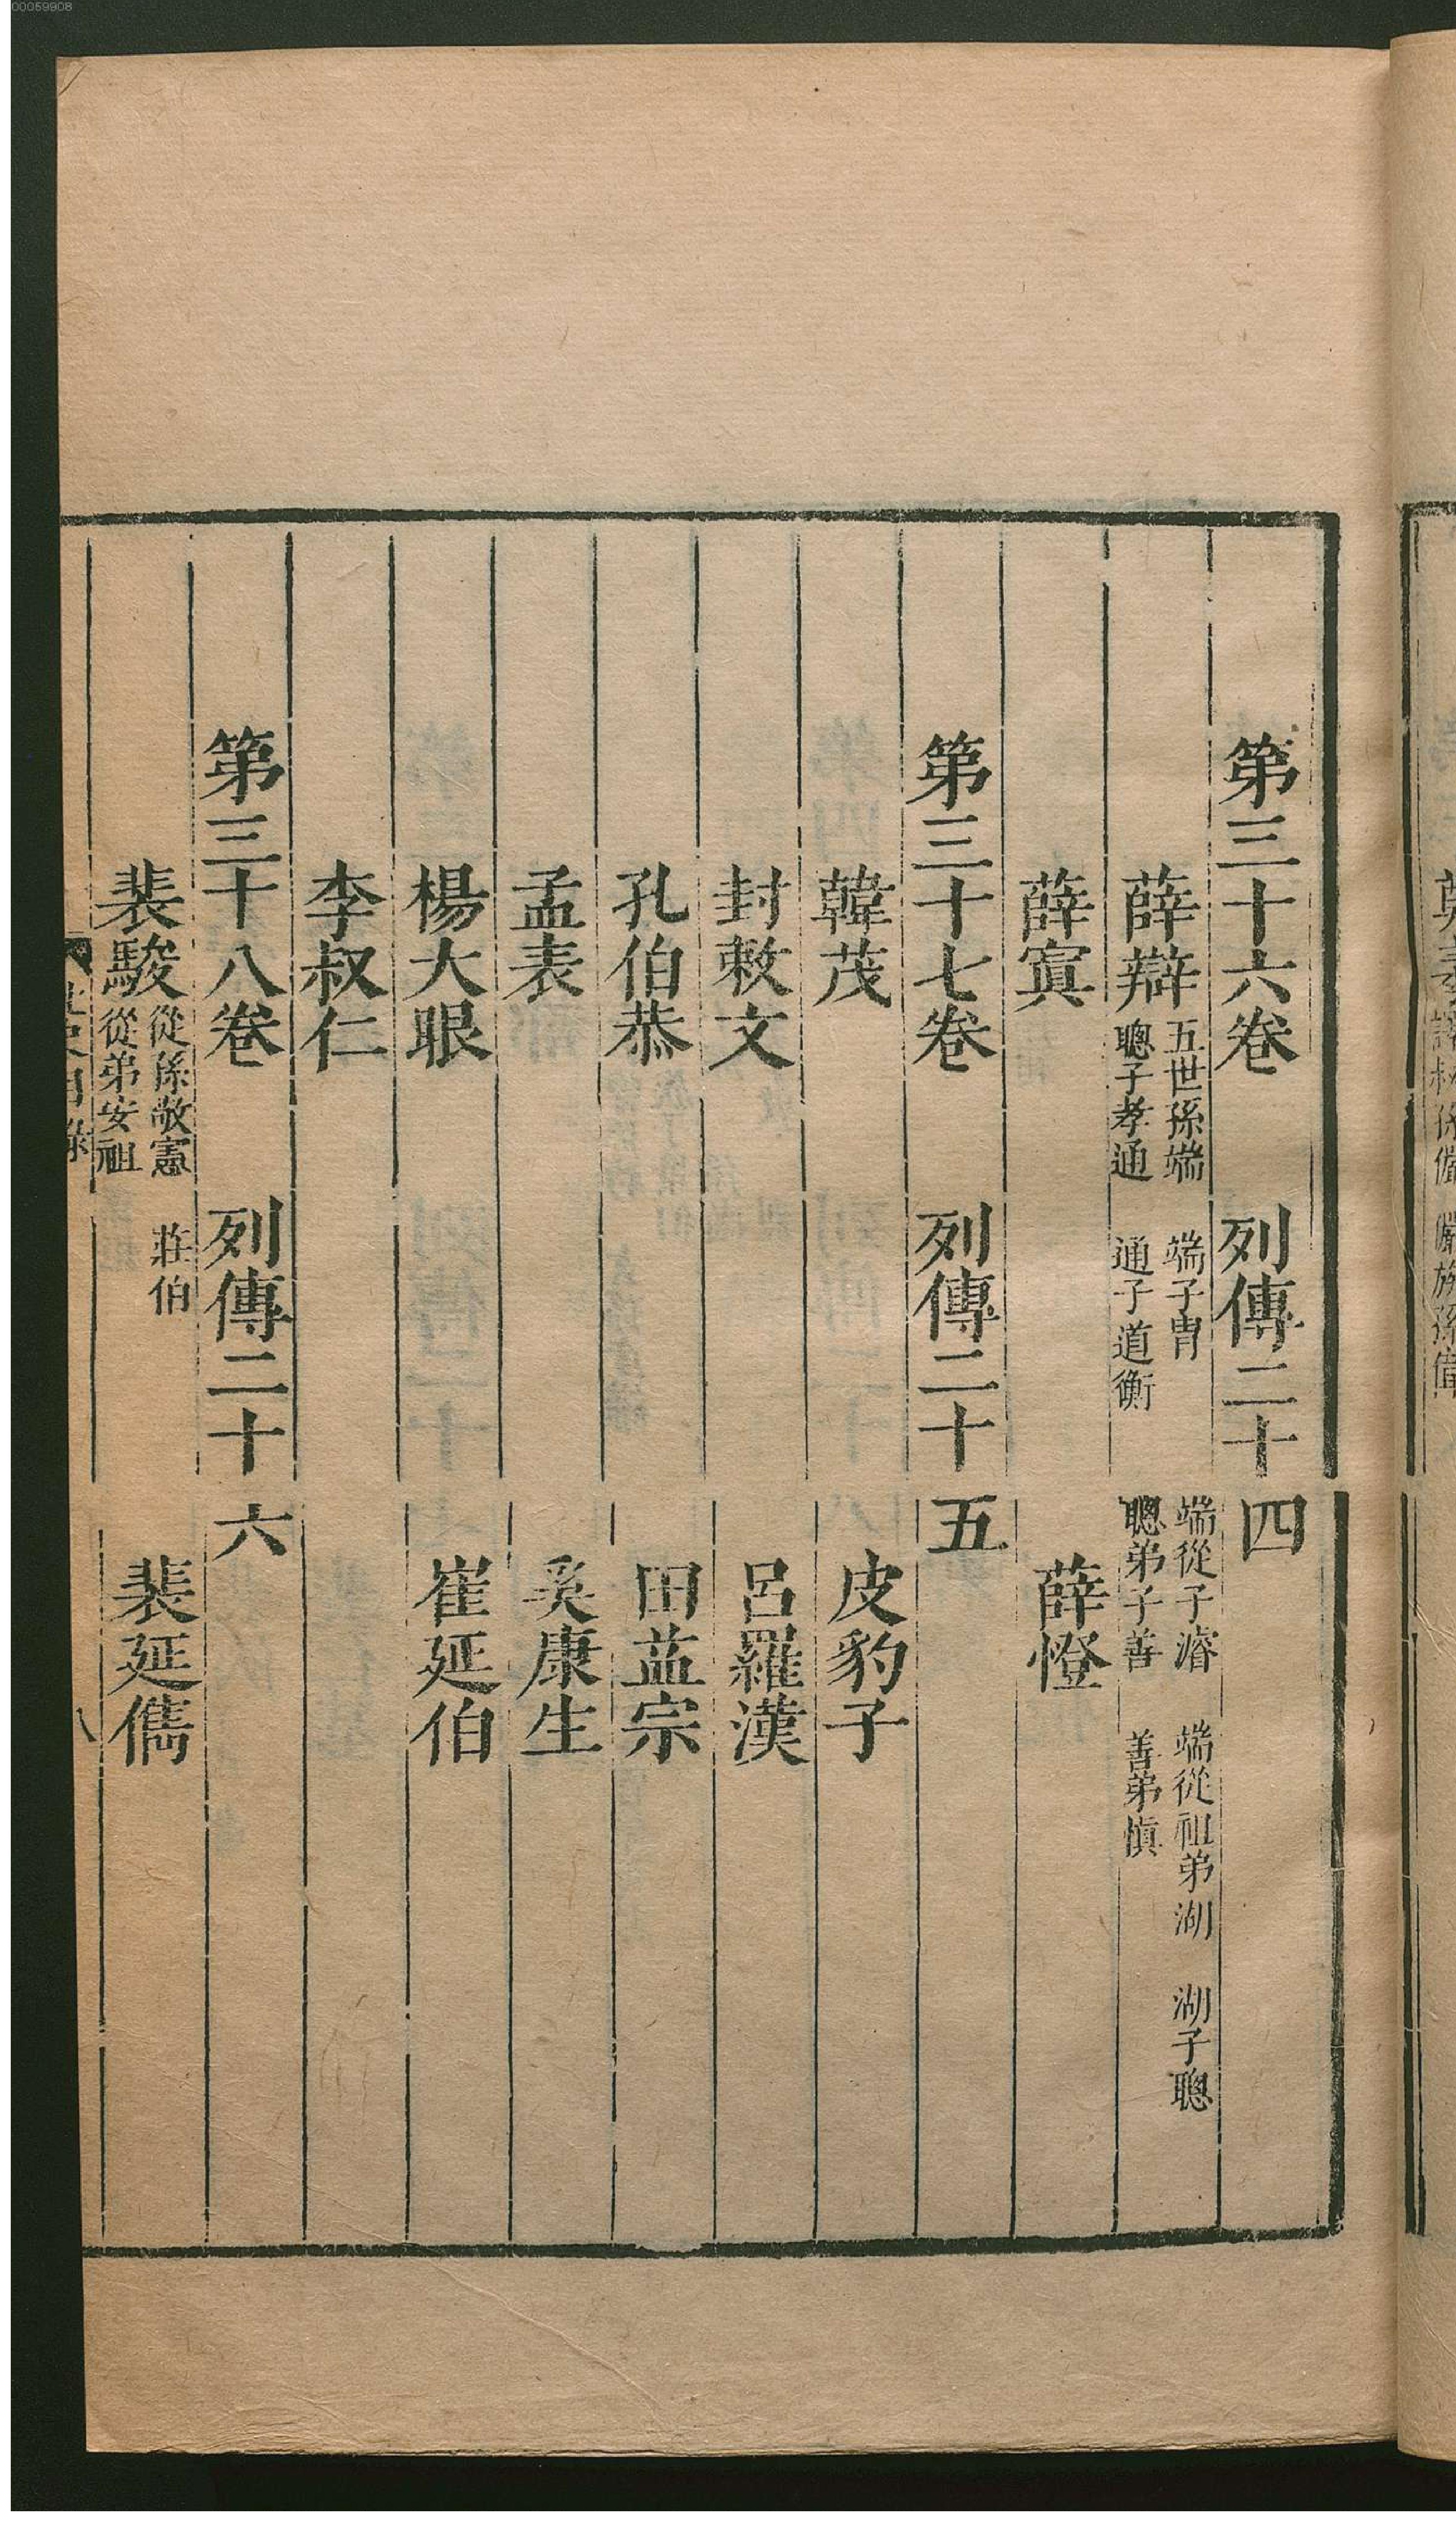 00059908
第三十六卷 列傳二十四
薛辯 五世孫端 端子胄 端從子濬 端從祖弟湖 湖子聰
聰子孝通 通子道衡 聰弟子善 善弟慎
薛寘 薛憕
第三十七卷 列傳二十五
韓茂 皮豹子
封敕文 呂羅漢
孔伯恭 田益宗
孟表 奚康生
楊大眼 崔延伯
李叔仁
第三十八卷 列傳二十六
裴駿 從孫敬憲 莊伯
從弟安祖 裴延儁
八